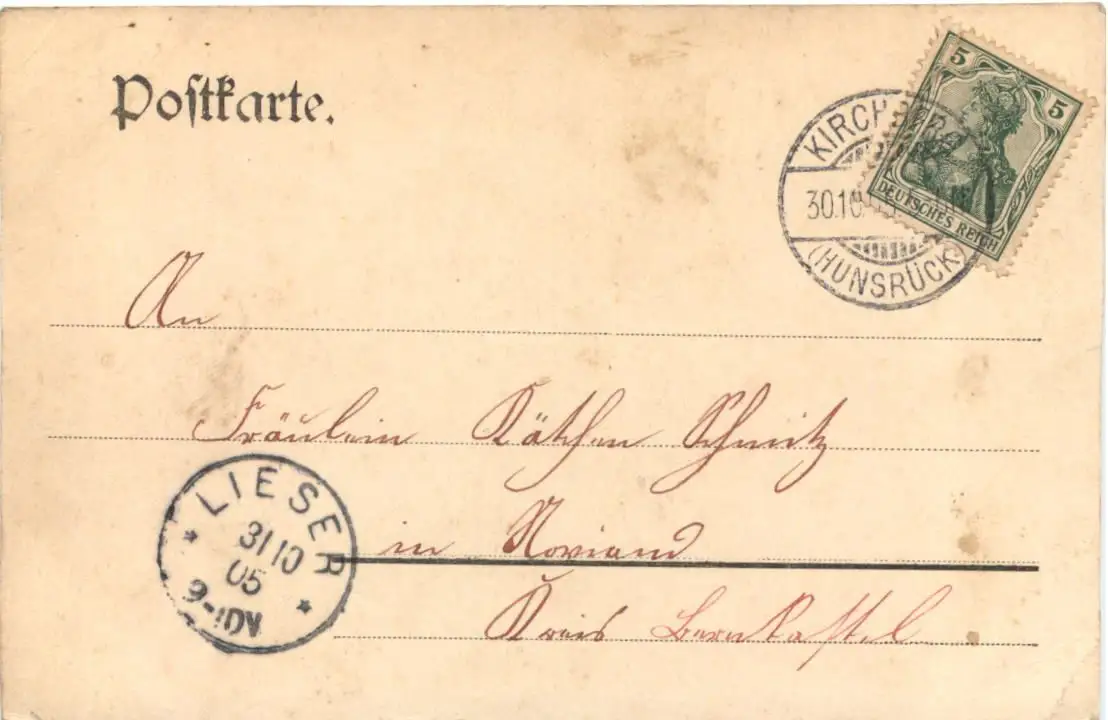 Postkarte.
5 5
DEUTSCHES REICH
KIRCH
30.10.
(HUNSRÜCK)
An
Fräulein Käthchen Schmitz
in Noviand
Kreis Bernkastel
LIESER
31 10
05
9-10V